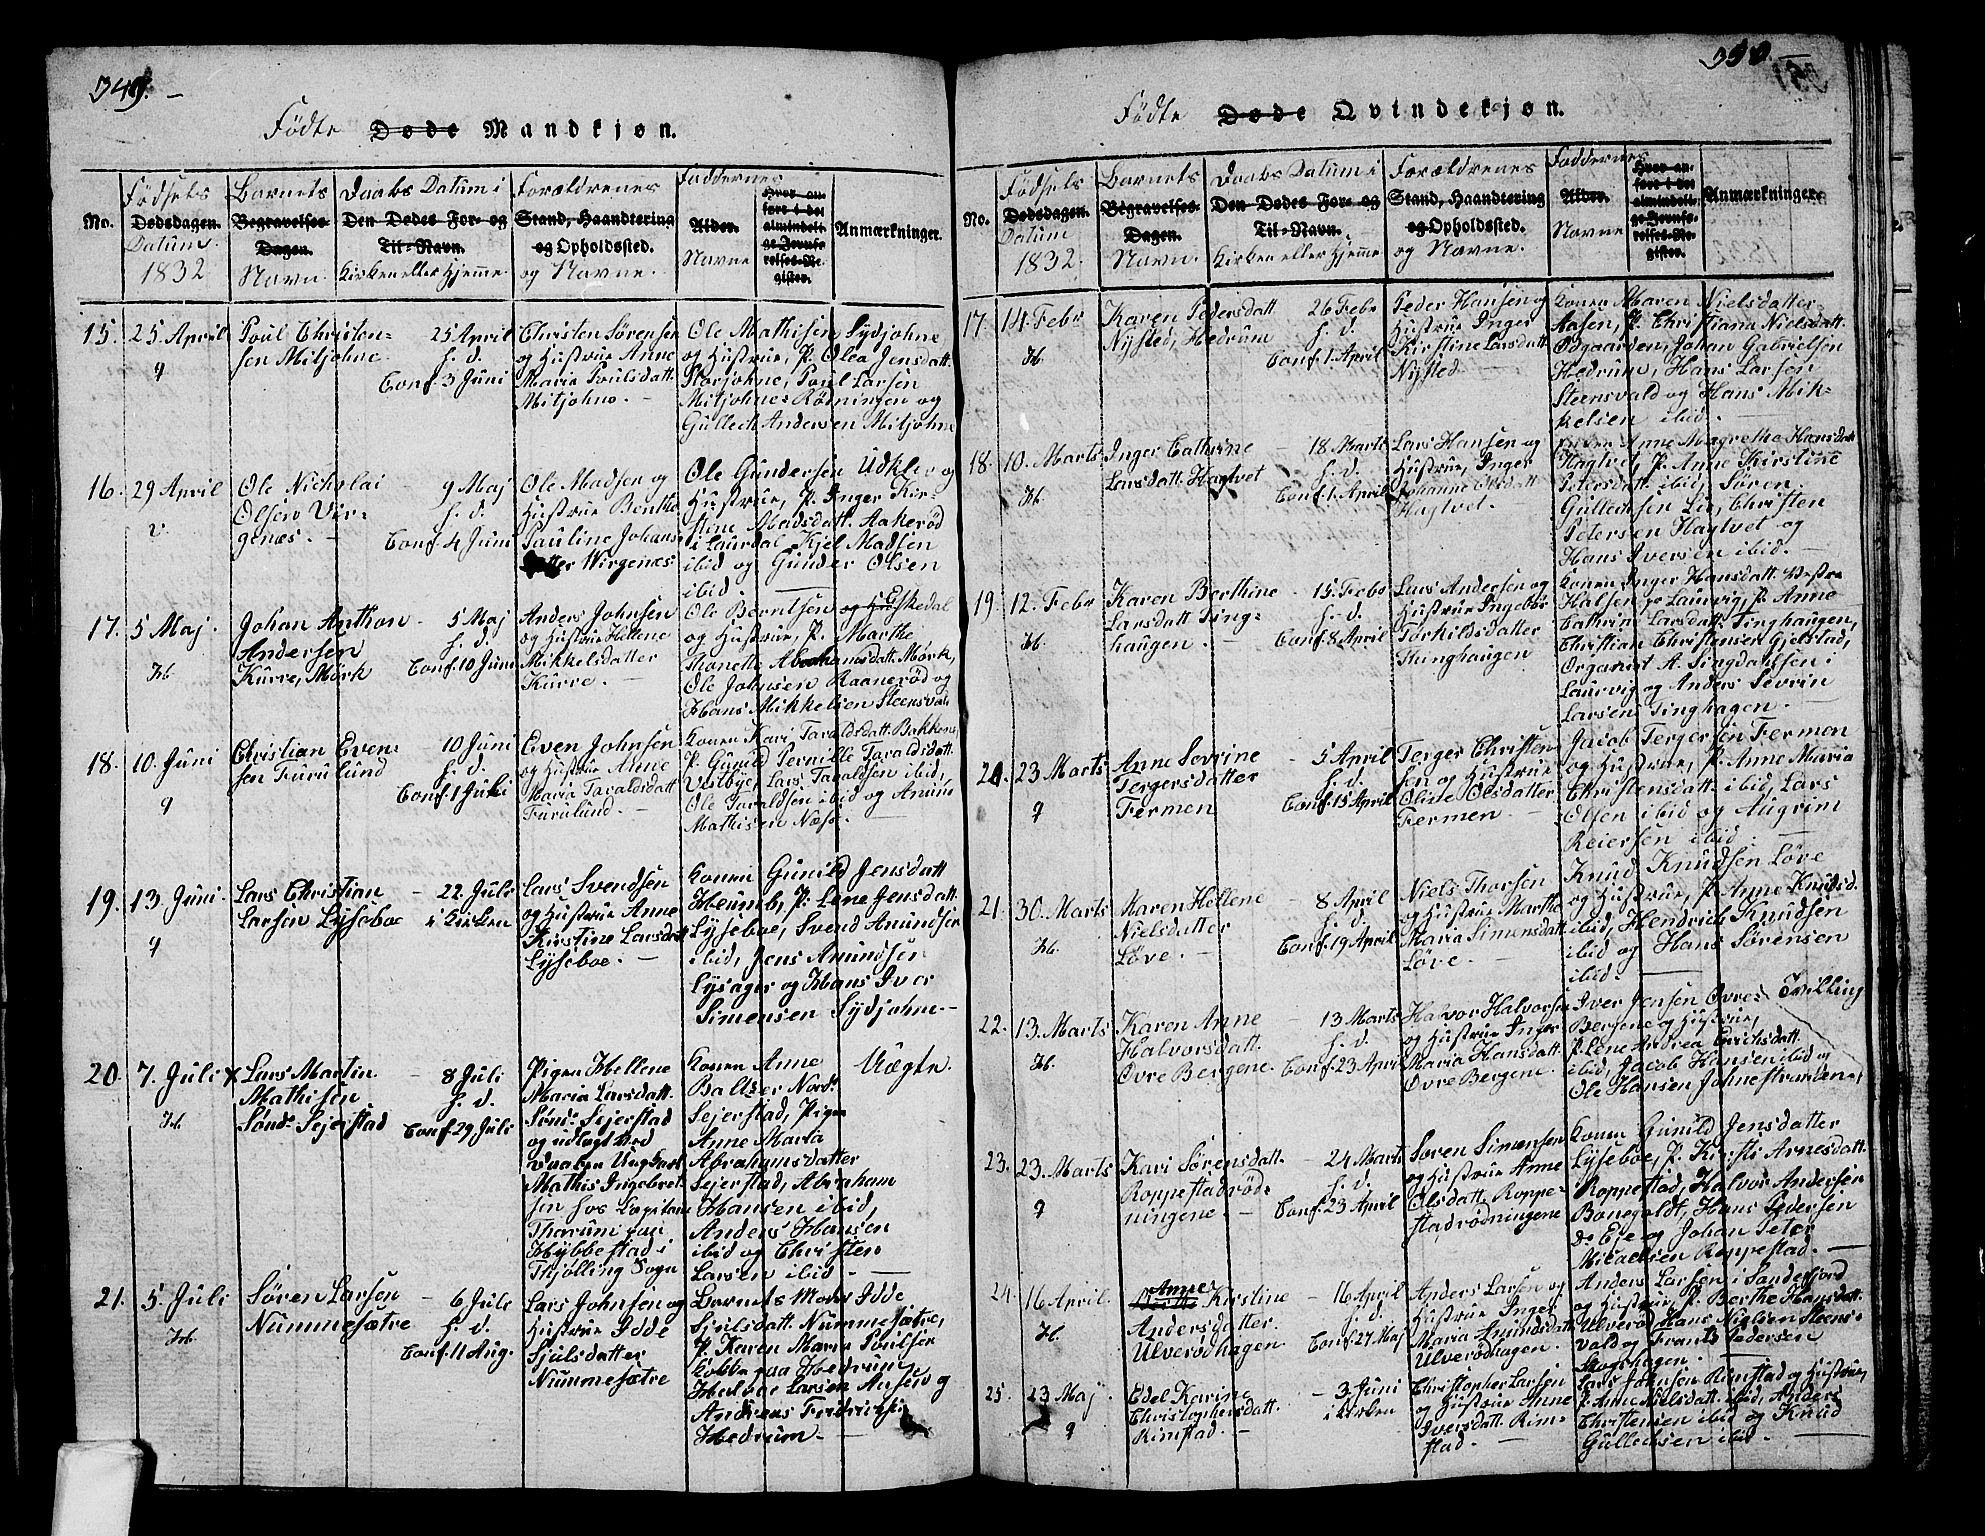 349.
Fødte Døde Mandkjøn.
No.
Fødsels
Dødsdagen.
Datum.
1832
Barnets
Begravelses-
Dagen.
Navn.
Daabs Datum i
Den Dødes For- og
Til-Navn.
Kirken eller Hjemme
Forældrenes
Stand, Haandtering
og Opholdssted.
og Navne.
Faddernes
Alder.
Navne
Hvor an-
ført i det
almindeli-
ge Jevnfø-
relses-Re-
gister.
Anmærkninger.
15. 25 April
q
Poul Christen-
sen Mitjohne
25 April
h. d.
Conf. 3 Juni
Christen Sørensen
og Hustrue Anne
Maria Poulsdatt.
Mitjohne. —
Ole Mathisen Sydjohne
og Hustrue, P. Olea Jensdatt.
Storjohne, Poul Larsen
Mitjohnes Rømingen og
Gullech Andersen Mitjohne
16. 29 April
v.
Ole Nicholai
Olsen Vir-
genæs. —
9 Maj
h. d.
Conf. 4 Juni
Ole Madsen og
Hustrue Benthe
Pauline Johans-
datter Wirgenæs
Ole Gundersen Udklev og
Hustrue, P. Inger Kir-
stine Madsdatt. Aakerød
i Laurdal Kjel Madsen
ibid og Gunder Olsen
ibid. —
17. 5 Maj.
Hb.
Johan Anthon
Andersen
Kurre, Mørk
- 5 Maj
h. d.
Conf. 10 Juni
Anders Johnsen
og Hustrue Hellene
Mikkelsdatter
Kurre. —
Ole Berntsen og Hu Eskedal
og Hustrue, P. Marthe
Thonette Abrahamsdatt. Mørk,
Ole Johnsen Raanerød og
Hans Mikkelsen Steensvald
18. 10. Juni
q
Christian Even-
sen Furulund
- 10 Juni
h. d.
Conf. 1 Juli
Even Johnsen
og Hustrue Anne
Maria Taraldsdatt
Furulund. —
Konen Kari Taraldsdatt. Bakken,
P. Gunild Pernille Taraldsdatt.
Vestbye, Lars Taraldsen ibid,
Ole Taraldsen ibid og Anum
Mathisen Næss. —
19. 13. Juni
q
Lars Christian
Larsen Lyseboe
- 22. Juli
i Kirken
Lars Svendsen
og Hustrue Anne
Kirstine Larsdatt
Lyseboe. —
Konen Gunild Jensdatt
Heumb, P. Line Jensdatt.
Lyseboe, Svend Amundsen
ibid, Jens Amundsen
Lysager og Hans Iver
Simensen Sydjohne. —
20. 7. Juli
Hb.
x Lars Martin
Mathisen
Sønd. Sejerstad
- 8 Juli
h. d.
Conf. 29 Juli
Pigen Hellene
Maria Larsdatt.
Sønd. Sejerstad
og udlagt ved
Daaben Ungkarl
Mathis Ingebret-
sen hos
Tharum paa
Hybbestad i
Thjølling Sogn
Konen Anne
Baltzer Nord.
Sejerstad, Pigen
Anne Maria
Abrahamsdatter
Sejerstad, Abraham
Hansen ibid,
Anders Hansen
ibid og Christen
Larsen ibid. —
Uægte.
21. 5. Juli
Hb.
Søren Larsen
Nummesætre
- 6 Juli
h. d.
Conf. 11 Aug.
Lars Johnsen og
Hustrue Idde
Sjulsdatter
Nummesætre
Barnets Moder Idde
Sjulsdatt. Nummesætre,
P. Karen Maria Poulsen
Kobbe paa Hedrum
Halvor Larsen Ansen og
Andreas Fredrichs
Hedrum. —
350.
Fødte Døde Qvindekjøn.
No.
Fødsels
Dødsdagen.
Datum
1832.
Barnets
Begravelses-
Dagen.
Navn.
Daabs Datum i
Den Dødes For- og
Til-Navn.
Kirken eller Hjemme
Forældrenes
Stand, Haandtering
og Opholdssted.
og Navne.
Faddernes
Alder.
Navne
Hvor an-
ført i det
almindeli-
ge Jevnfø-
relses-Re-
gister.
Anmærkninger.
17. 14. Febr
Hb.
Karen Pedersdatt
Nysted, Hedrum
26 Febr
h. d.
Conf. 1. April
Peder Hansen og
Hustrue Inger
Kirstine Larsdatt
Nysted —
Konen Maren Nielsdatter
Aasen, P. Christiana Nielsdatt.
Odgaarden, Johan Gabrielsen
Hedrum, Hans Larsen
Steensvald og Hans Mik-
kelsen ibid. —
18. 10. Marts
Hb.
Inger Cathrine
Larsdatt. Hagtvet
- 18 Marts
h. d.
Conf. 1 April
Lars Hansen og
Hustrue, Inger
Johanne Olsdatt
Hagtvet. —
Konen Anne Magrethe Hansdatt
Hagtvet, P. Anne Kirstine
Petersdatt. ibid, Søren
Gullechsen Lie, Christen
Petersen Hagtvet og
Hans Iversen ibid. —
19. 12. Febr
Hb.
Karen Berthine
Larsdatt. Ting-
haugen. —
- 15. Febr
h. d.
Conf. 8 April
Lars Andersen og
Hustrue Ingebor
Torkildsdatter
Thinghaugen
Konen Inger Hansdatt. Vestre
Halsen pr Laurvig, P. Anne
Cathrine Larsdatt. Tinghaugen,
Christian Christensen Gjelstad,
Organist A. Lingdahlsen i
Laurvig og Anders Sevrin
Larsen Tinghagen. —
20. 23 Marts
q
Anne Sevrine
Tergersdatter
Fermen
- 5 April
h. d.
Conf. 15 April
Terger Christen-
sen og Hustrue
Olive Olsdatter
Fermen —
Jacob Tergersen Fermen
og Hustrue, P. Anne Maria
Christensdatt. ibid, Lars
Olsen ibid og Augrim
Reiersen ibid. —
21. 30. Marts
Hb.
Maren Hellene
Nielsdatter
Løve. —
- 8 April
h. d.
Conf. 19 April
Niels Thorsen
og Hustrue Marthe
Maria Simensdatt
Løve. —
Knud Knudsen Løve
og Hustrue, P. Anne Knudsd.
ibid, Hendrich Knudsen
ibid og Hans Sørensen
ibid. —
22. 13. Marts
Hb.
Karen Anne
Halvorsdatt.
Øvre Bergene.
- 13 Marts
h. d.
Conf. 23 April
Halvor Halvorsen
og Hustrue Inger
Maria Hansdatt.
Øvre Bergene. —
Iver Jensen Øvre
Bergene og Hustrue,
P. Lene Andrea Enrichsdatt.
ibid, Jacob Hansen ibid og
Ole Hansen Johnestranden,
Tvilling
23. 23. Marts
q
Kari Sørensdatt.
Roppestadrød-
ningene. —
- 24 Marts
h. d.
Conf. 23 April
Søren Simensen
og Hustrue Anne
Olsdatt. Roppe-
stadrødningene
Konen Gunild Jensdatter
Lyseboe, P. Kirsti Arnesdatt.
Roppestad, Halvor Andersen
Bonegoldt, Hans Pedersen
de Eje og Johan Peter
Micaelsen Roppestad. —
24. 16 April.
Hb.
Anne
Kirstine
Andersdatter.
Ulverødhagen
- 16 April
h. d.
Conf. 27 Maj
Anders Larsen og
Hustrue Inger
Maria Amundsdatt
Ulverødhagen. —
Anders Larsen i Sandefjord
og Hustrue, P. Berthe Hansdatt.
Ulverød, Hans Nielsen Steens-
vald og Frants Pedersen
Skogshagen. —
25. 23 Maj
q
Edel Karine
Christophersdatt.
Rimstad. —
- 3 Juni
i Kirken
Christopher Larsen
og Hustrue Anne
Iversdatt. Rim-
stad. —
Lars Johnsen Rimstad og Hustrue,
P. Anne Nielsdatt. ibid, Anders
Christensen ibid og Knud
Gullechsen ibid. —